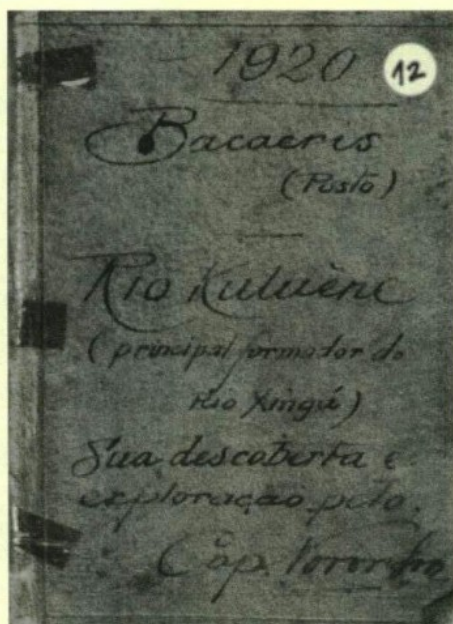 1920
12
Bacaeris
(Posto)
Rio Kuluène
(principal formador do
Rio Xingú)
Sua descoberta e
exploração pelo
Cap.